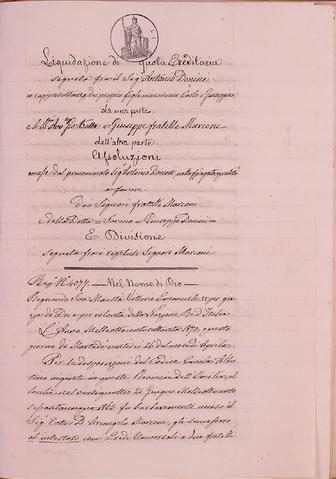 Liquidazione di Quota Ereditaria
seguita fra il Sig. Antonio Donini
in rappresentanza dei proprii figli minorenni Carlo e Giuseppa
da una parte
e Giuseppe fratelli Marconi
dall'altra parte
Assoluzioni
emesse dal prenominato Sig. Antonio Donini
a favore
dei Signori fratelli Marconi
della Ditta Savino e Giuseppe Donini
E Divisione
seguita fra i ripetuti Signori Marconi
Rep. N. 4077. Nel Nome di Dio
Regnando Sua Maestà Vittorio Emanuele II per gra-
zia di Dio e per volontà della Nazione Re d'Italia
L'Anno Milleottocentosettanta 1870, questo
giorno di Martedì 26 del mese di Aprile
Per la disposizione del Codice Civile
in queste Provincie dell'Emilia,
24 Giugno Milleottocento
1865 fu barbaramente ucciso il
Sig. Dottor D. Arcangelo Marconi, gli successero
ab intestato come Eredi Universali i due fratelli